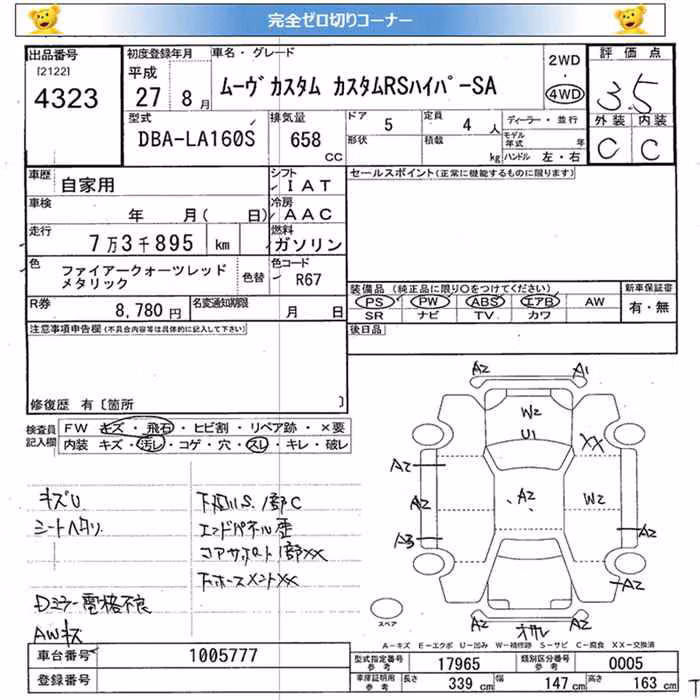 完全ゼロ切りコーナー
出品番号 初度登録年月 車名・グレード 2WD 評価点
[2122] 平成 ムーヴ カスタム カスタムRSハイパーSA ・
4323 27 8月 4WD 3.5
型式 排気量 ドア 5 定員 4人 ディーラー・並行 外装 内装
DBA-LA160S 658 CC 形状 積載 kg モデル年式 年 C C
ハンドル 左・右
車歴 自家用 シフト IAT セールスポイント(正常に機能するものに限ります)
車検 年 月( 日) 冷房 AAC
走行 7万3千895 km 燃料 ガソリン
色 ファイアークォーツレッド 色替 色コード R67
メタリック
装備品(純正品に限り○をつけてください) 新車保証書
R券 8,780円 名変通知期限 月 日 PS PW ABS エアB AW 有・無
SR ナビ TV カワ
注意事項申告欄(不具合内容等は具体的に記入して下さい) 後日品
修復歴 有[箇所 ]
検査員記入欄 FW キズ・飛石・ヒビ割・リペア跡・×要
内装 キズ・汚レ・コゲ・穴・スレ・キレ・破レ
A2 A1
W2
U1 XX
A2
A2 A2 W2
A3 A2
A2
A2 A2
キズU
シートヘタリ
エンドパネル歪
コアサポート1部XX
Dミラー電格不良
AWキズ
スペア
A-キズ E-エクボ U-凹み W-補修跡 S-サビ C-腐食 XX-交換済
車台番号 1005777 型式指定番号参考 17965 類別区分番号参考 0005
登録番号 車庫証明用参考 長さ 339 cm 幅 147 cm 高さ 163 cm